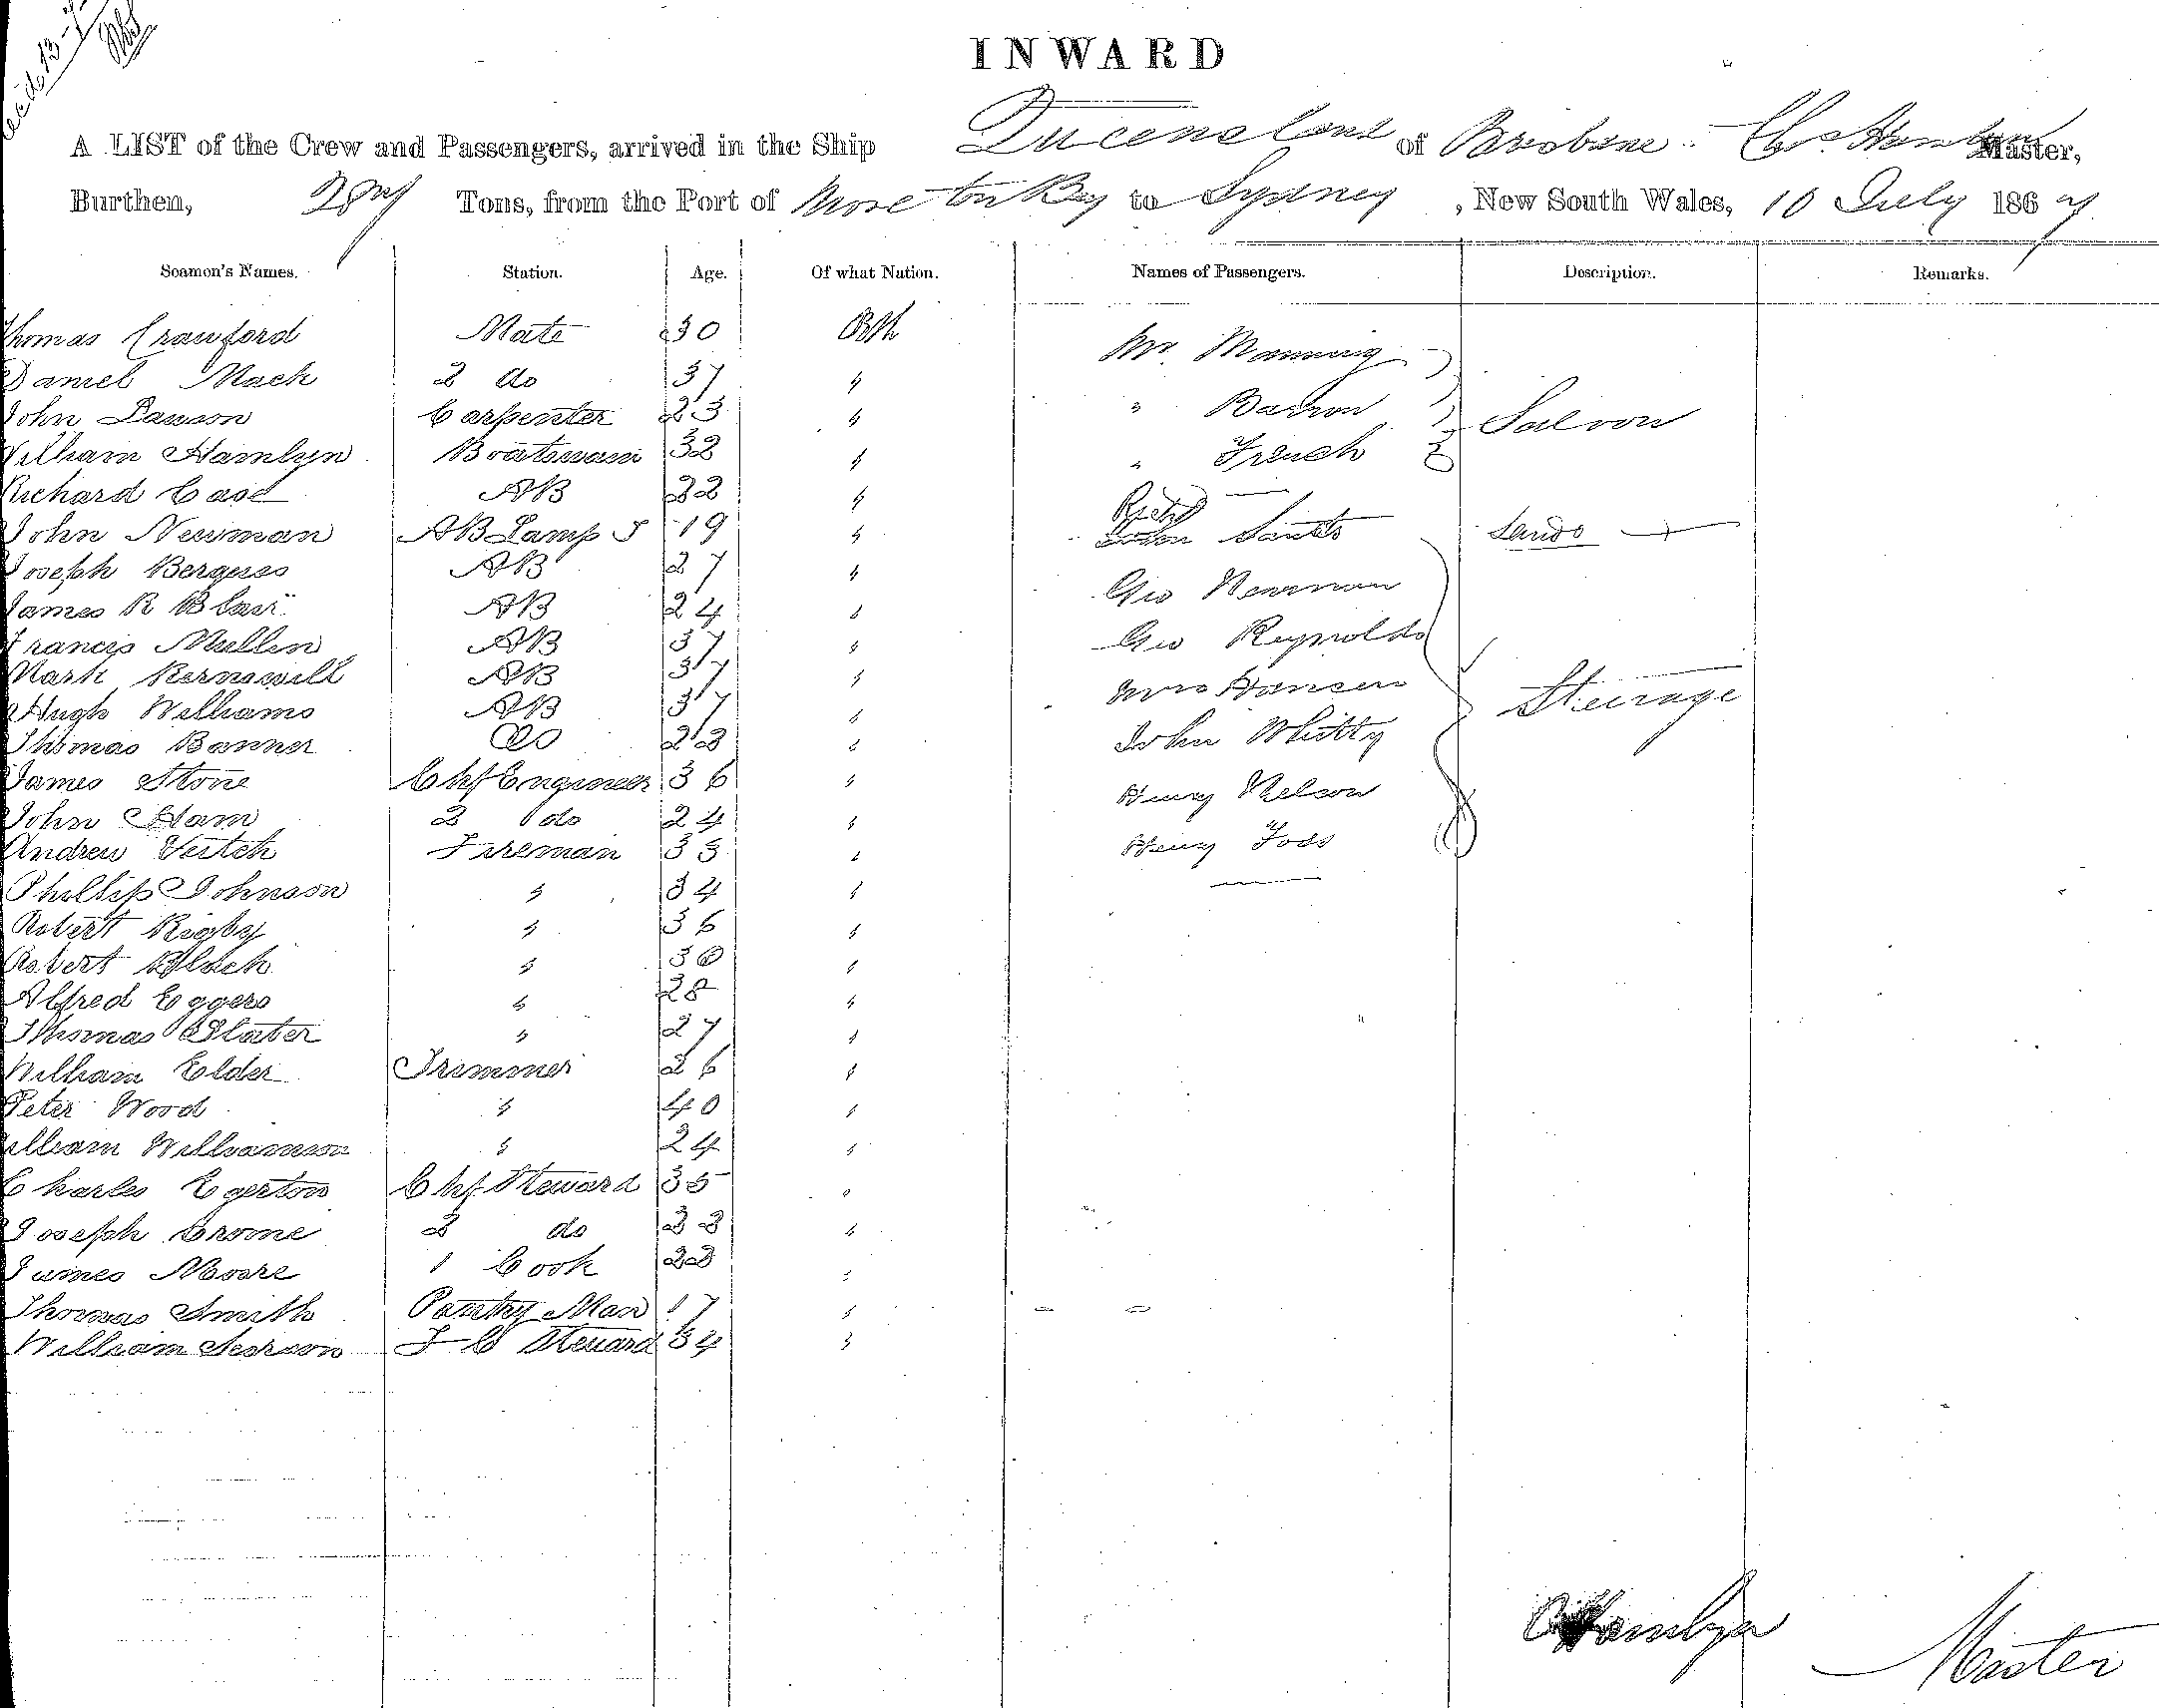 INWARD
A LIST of the Crew and Passengers, arrived in the Ship Queensland of Brisbane. Master,
Burthen, Tons, from the Port of Moreton Bay to Sydney, New South Wales, 10 July 1867
Seamen's Names. Station. Age. Of what Nation. Names of Passengers. Description. Remarks.
Thomas Crawford Mate 30 Bth
Daniel Mack 2 do 37 "
John Lawson Carpenter 23 "
William Hamlyn Boatswain 32 "
Richard Case AB 22 "
John Newman AB Lamp T 19 "
Joseph AB 27 "
James R Blair AB 24 "
Francis Mullin AB 37 "
Mark AB 37 "
Hugh Williams AB 37 "
Thomas Banner 23 "
James Stone Chf Engineer 36 "
John Ham 2 do 24 "
Andrew Veitch Fireman 33 "
Phillip Johnson " 34 "
Robert Rigby " 36 "
Robert Black " 30 "
Alfred Eggers " 28 "
Thomas Slater " 27 "
William Elder Trimmer 26 "
Peter Wood " 40 "
William Williamson " 24 "
Charles Egerton Chf Steward 35 "
Joseph Crome 2 do 23 "
James Moore 1 Cook 22 "
Thomas Smith Pantry Man 17 "
William F C Steward 34 "
Mr. Manning
" Barron Saloon
" French
Richd
Geo Newman
Geo Reynolds
Mrs Hansen Steerage
John Whitty
Henry Nelson
Henry
C Hamlyn Master